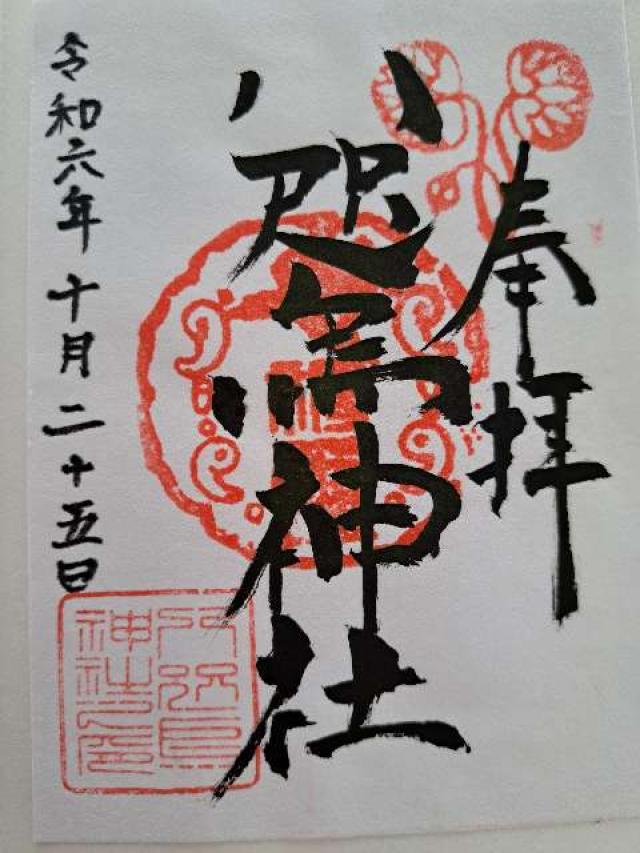 奉拝
八咫烏神社
令和六年十月二十五日
八咫烏
神社印